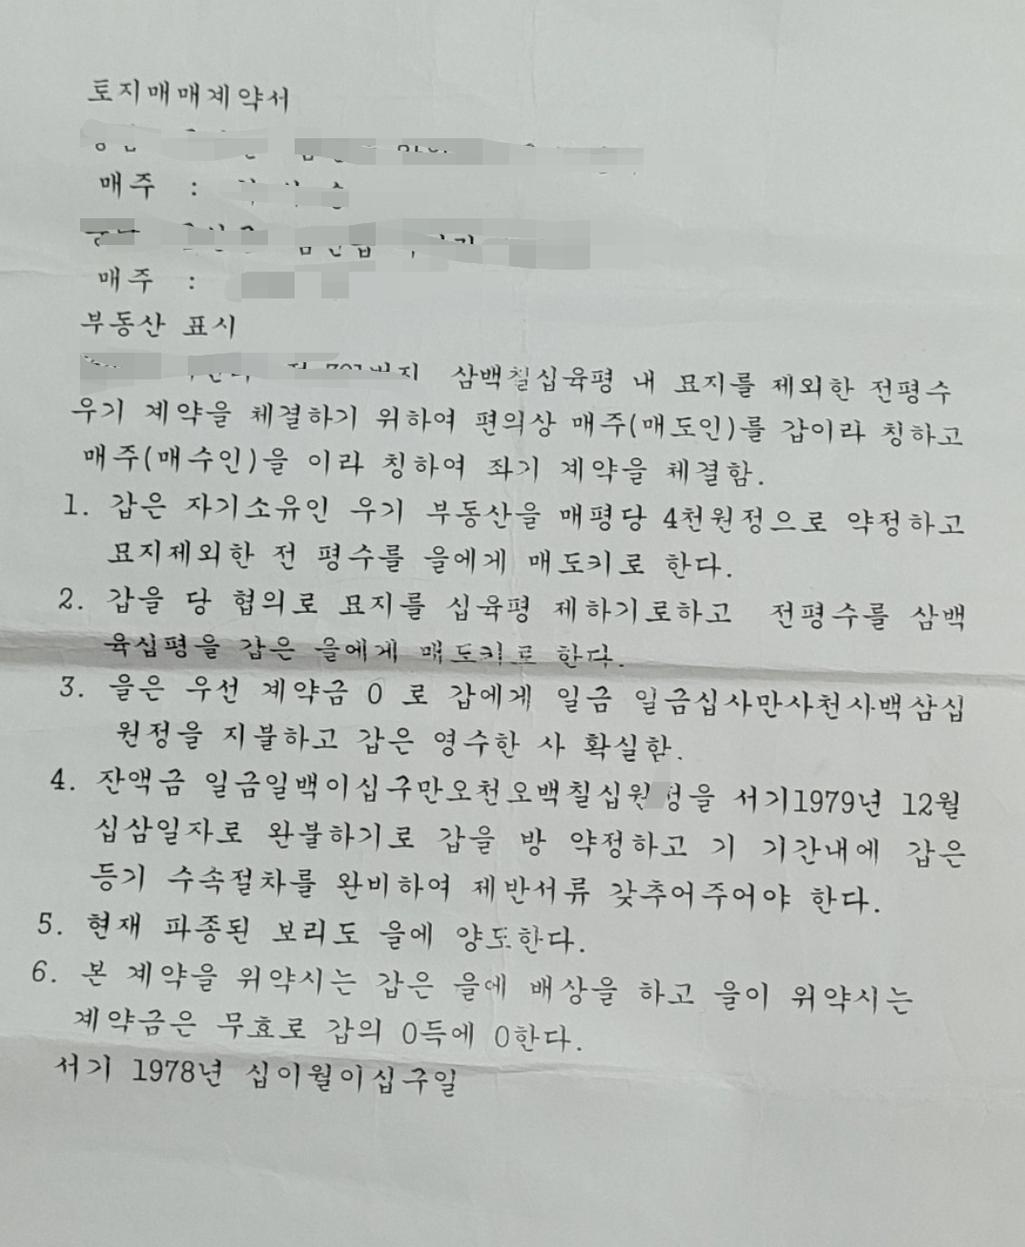 토지매매계약서
매주 :
매주 :
부동산 표시
삼백칠십육평 내 묘지를 제외한 전평수
우기 계약을 체결하기 위하여 편의상 매주(매도인)를 갑이라 칭하고
매주(매수인)을 이라 칭하여 좌기 계약을 체결함.
1. 갑은 자기소유인 우기 부동산을 매평당 4천원정으로 약정하고
묘지제외한 전 평수를 을에게 매도키로 한다.
2. 갑을 당 협의로 묘지를 십육평 제하기로하고 전평수를 삼백
육십평을 갑은 을에게 매도키로 한다.
3. 을은 우선 계약금 0 로 갑에게 일금 일금십사만사천사백삼십
원정을 지불하고 갑은 영수한 사 확실함.
4. 잔액금 일금일백이십구만오천오백칠십원정을 서기1979년 12월
십삼일자로 완불하기로 갑을 방 약정하고 기 기간내에 갑은
등기 수속절차를 완비하여 제반서류 갖추어주어야 한다.
5. 현재 파종된 보리도 을에 양도한다.
6. 본 계약을 위약시는 갑은 을에 배상을 하고 을이 위약시는
계약금은 무효로 갑의 0득에 0한다.
서기 1978년 십이월이십구일